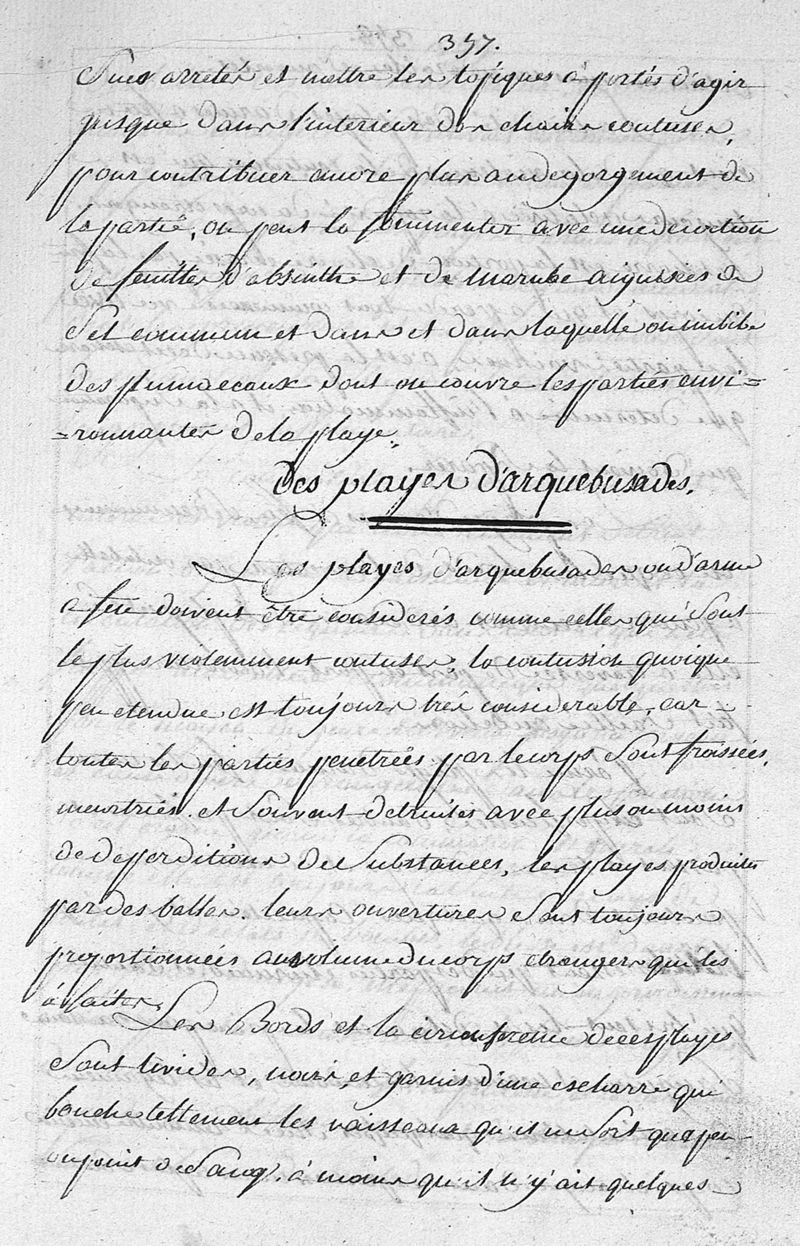 357.
Sucs arretés et mettre les topiques a portés d'agir
jusque dans l'interieur des chairs contuses,
pour contribuer encore plus au degorgement de
la partie, on peut la fomenter avec une decoction
de feuilles d'absinthe et de marube aiguisées de
Sel commun et dans et dans laquelle on imbibe
des plumaceaux dont on couvre les parties envi=
=ronnantes de la playe.
Des playes d'arquebusades.
Les playes d'arquebusades ou d'arme
a feu doivent être considerés comme celles qui sont
le plus violemment contuses, la contusion quoique
peu etendue est toujours trés considerable, car
toutes les parties penetrées par le corps sont froissées,
meurtries, et souvent detruites avec plus ou moins
de deperditions de Substances, les playes produites
par des balles. leurs ouvertures sont toujours
proportionnées au volume du corps etranger qui les
à faites.
Les Bords et la circonference de ces playes
sont livides, noirs, et garnis d'une escharre qui
bouche tellement les vaisseaux qu'il ne sort que peu
ou point de sang, à moins qu'il n'y ait quelques